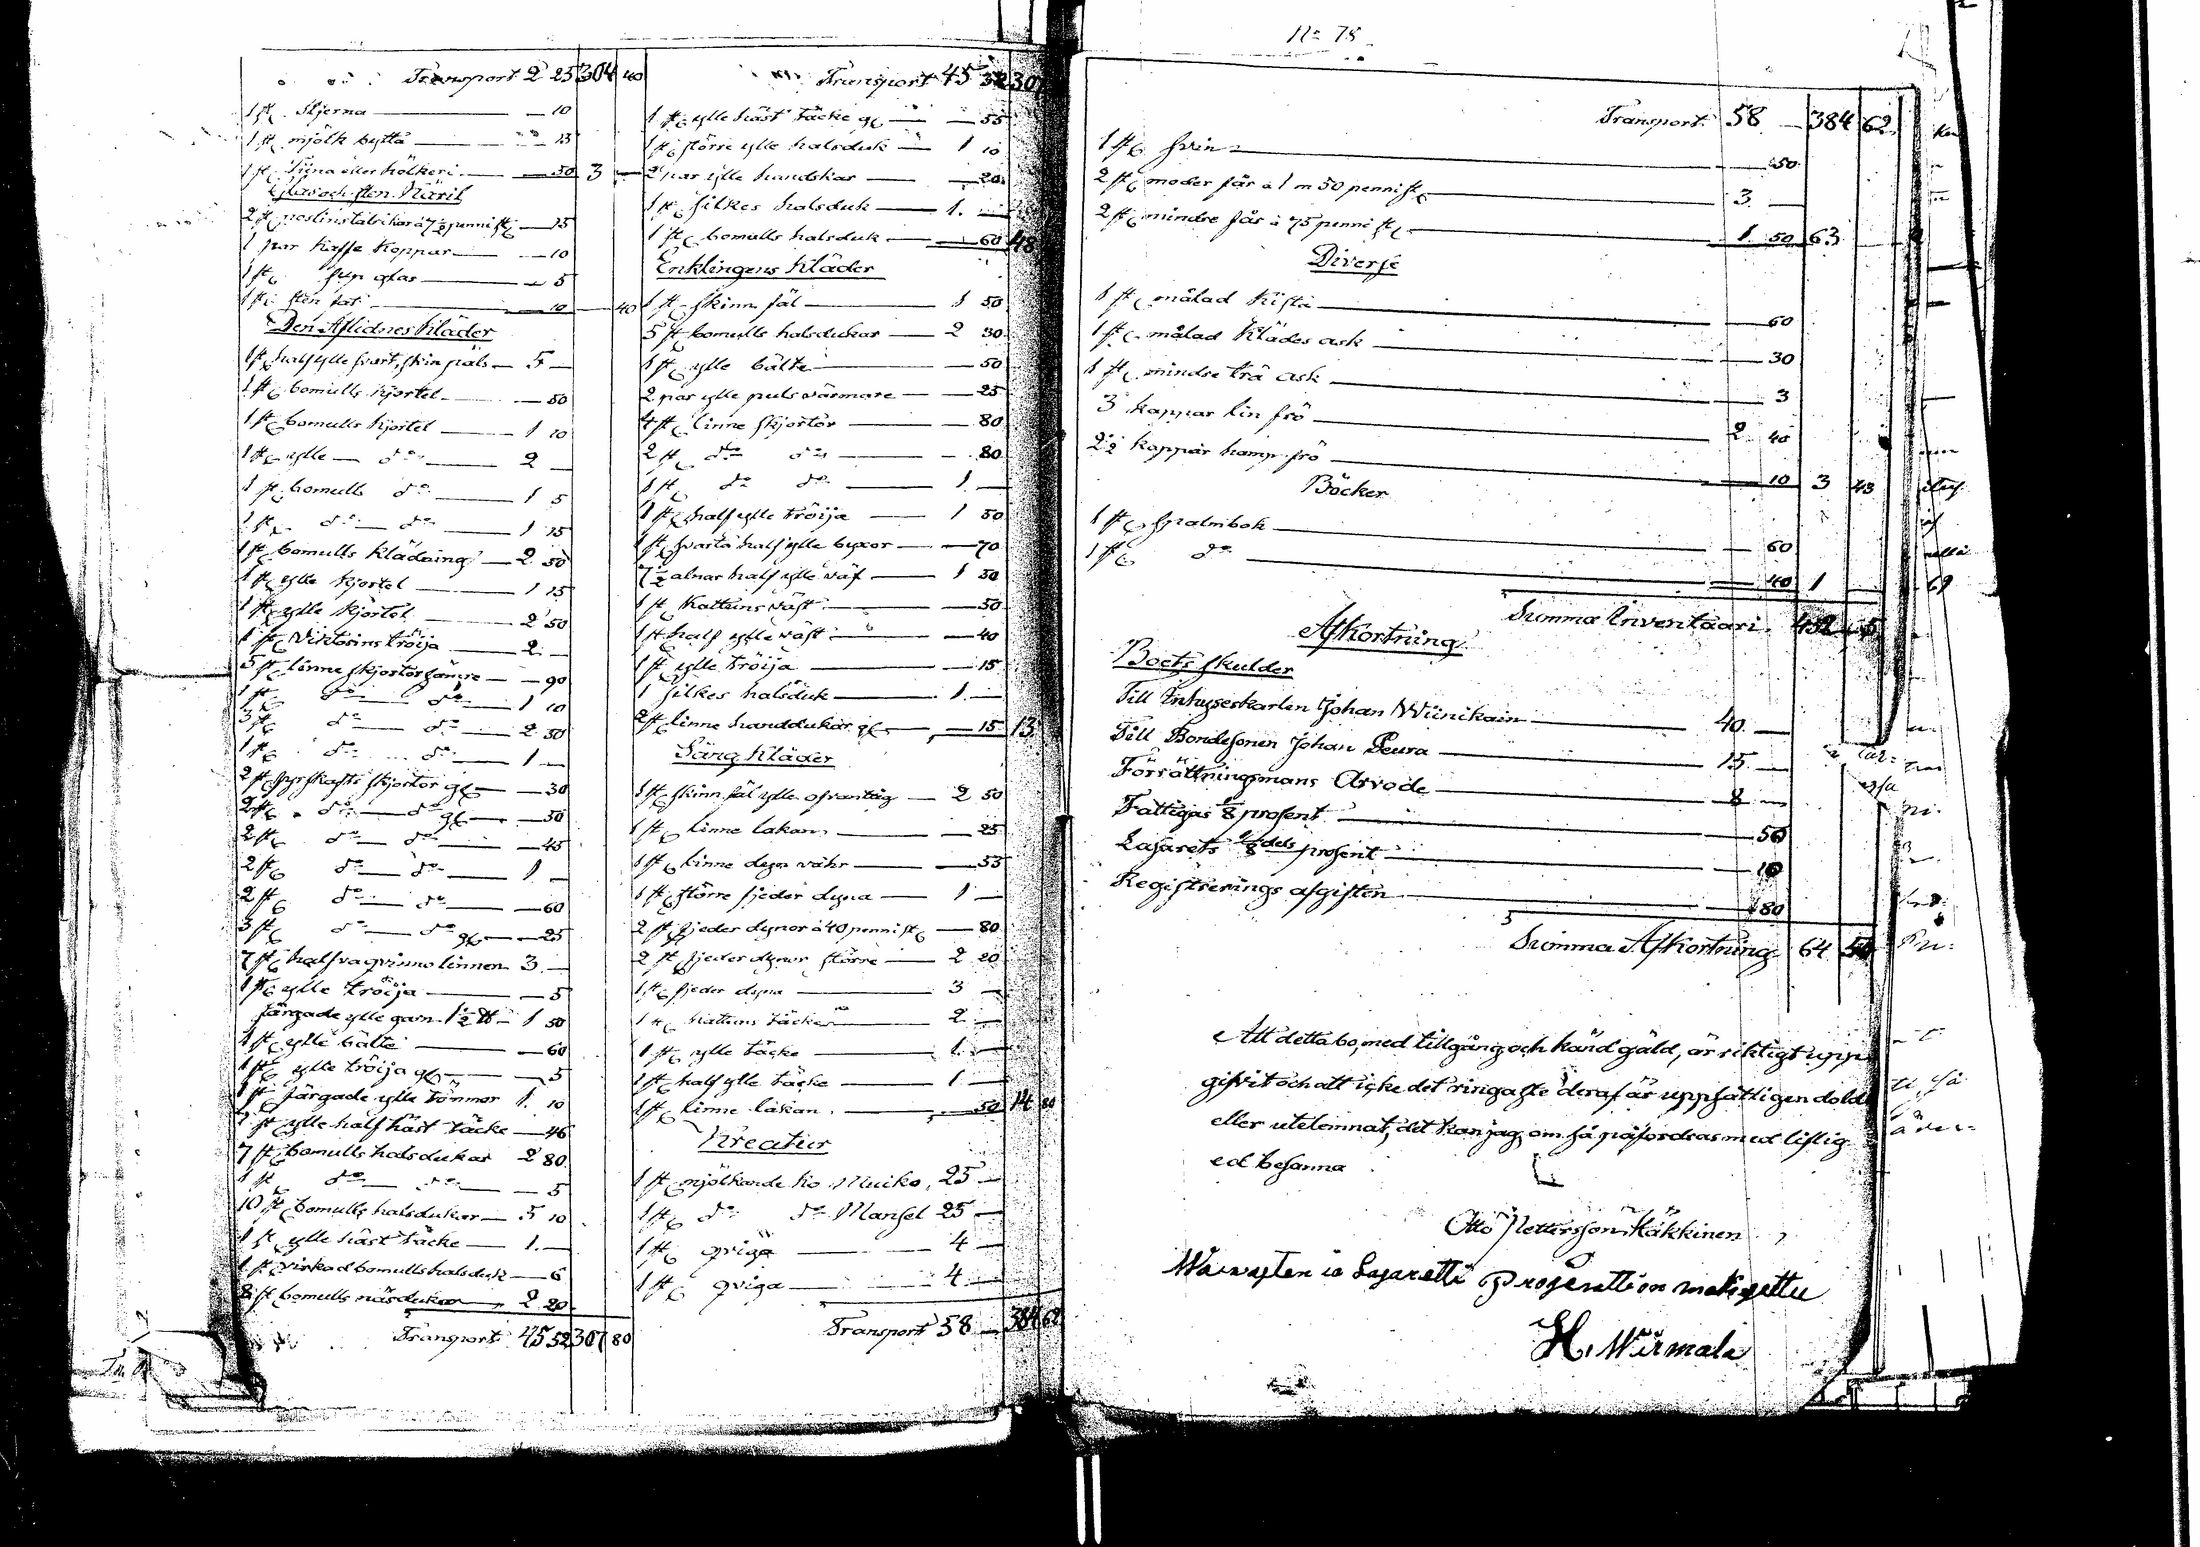 Transport 2 25 304 40
1 st. Stjerna — 10
1 st. mjölk bytta — 15
1 st. Tina eller hölkeri — 50 3 —
Glas och sten Käril
2 st. poslinstalrikar à 7½ penni st. — 15
1 par Kaffe Koppar — 10
1 st. sup glas — 5
1 st. sten fat — 10 — 40
Den Aflidnes Kläder
1 st. half ylle svart, skinpäls — 5 —
1 st. bomulls kjortel — 50
1 st. bomulls kjortel — 1 10
1 st. ylle — do — 2 —
1 st. bomulls do — 1 5
1 st. do — do — 1 15
1 st. bomulls Klädning — 2 50
1 st. ylle kjortel — 1 15
1 st. ylle kjortel — 2 50
1 st. Viktorins tröija — 2 —
5 st. linne skjortor sämre — 90
1 st. do do — 1 10
3 st. do — do — 2 50
1 st. do do — 1 —
2 st. fyrskafts skjortor gl. — 30
2 st. do — do gl. — 50
2 st. do — do — 45
2 st. do — do — 1 —
2 st. do — do — 60
3 st. do — do gl. — 25
7 st. halfva qvinno linnen 3 —
1 st. ylle tröija — 5
färgade ylle garn 1½ ℔ — 1 50
1 st. ylle bälte — 60
1 st. ylle tröija gl. — 5
1 st. färgade ylle 1 10
1 st. ylle half häst täcke — 46
7 st. bomulls halsdukar 2 80
1 st. do — do — 5
10 st. bomulls halsdukar — 5 10
1 st. ylle häst täcke — 1 —
1 st. virkad bomulls halsduk — 6
8 st. bomulls näsdukar 2 20
Transport 45 52 307 80
Transport 45 52 307
1 st. ylle häst täcke gl. — 55
1 st. större ylle halsduk — 1 10
2 par ylle handskar — 20
1 st. silkes halsduk — 1 —
1 st. bomulls halsduk — 60 48
Enklingens Kläder
1 st. skinn fäl — 1 50
5 st. bomulls halsdukar — 2 30
1 st. ylle bälte — 50
2 par ylle puls värmare — 25
4 st. linne skjortor — 80
2 st. do do — 80
1 st. do do — 1 —
1 st. half ylle tröija — 1 50
1 st. svarta half ylle byxor — 70
7½ alnar half ylle väf — 1 50
1 st. Kattuns väst — 50
1 st. half ylle väst — 40
1 st. ylle tröija — 15
1 silkes halsduk — 1 —
2 st. linne handdukar gl. — 15 13
Säng kläder
1 st. skinn fäl ylle ofvantäg — 2 50
1 st. linne lakan — 25
1 st. linne dyn vahr — 55
1 st. större fjeder dyna — 1 —
2 st. fjeder dynor à 40 penni st. — 80
2 st. fjeder dynor större — 2 20
1 st. fjeder dyna — 3 —
1 st. Kattuns täcke — 2 —
1 st. ylle täcke — 1 —
1 st. half ylle täcke — 1 —
1 st. linne lakan — 50 14 80
Kreatur
1 st. mjölkande ko Muiko, 25 —
1 st. do do Mansel 25 —
1 st. qviga — 4 —
1 st. qviga — 4 —
Transport 58 — 384 62
No 78
Transport 58 — 384 62
1 st. svin — 50
2 st. moder får à 1 m 50 penni st. — 3 —
2 st. mindre får à 75 penni st. — 1 50 63
Diverse
1 st. målad Kista — 60
1 st. målad Klädes ask — 30
1 st. mindre trä ask — 3
3 kappar lin frö — 2 40
2½ kappar hamp frö — 10 3 43
Böcker
1 st. psalmbok — 60
1 st. do — 40 1
Summa Inventaari 452 5
Afkortning
Boets skulder
Till Inhyseskarlen Johan Wiinikain — 40 —
Till Bondesonen Johan Peura — 15 —
Förrättningsmans Arvode — 8 —
Fattigas ⅛ prosent — 50
Lasarets ⅛dels prosent — 10
Registrerings afgiften — 80
Summa Afkortning 64
Att detta bo, med tillgång och känd gäld, är riktigt upp
gifvit och att icke det ringaste deraf är uppsåtligen dold
eller utelemnat, det kan jag, om så påfordras med liflig
ed besanna
Otto Pettersson Häkkinen
Waiwasten ia Lasaretti Prosenttion maksettu
H. Wirmala